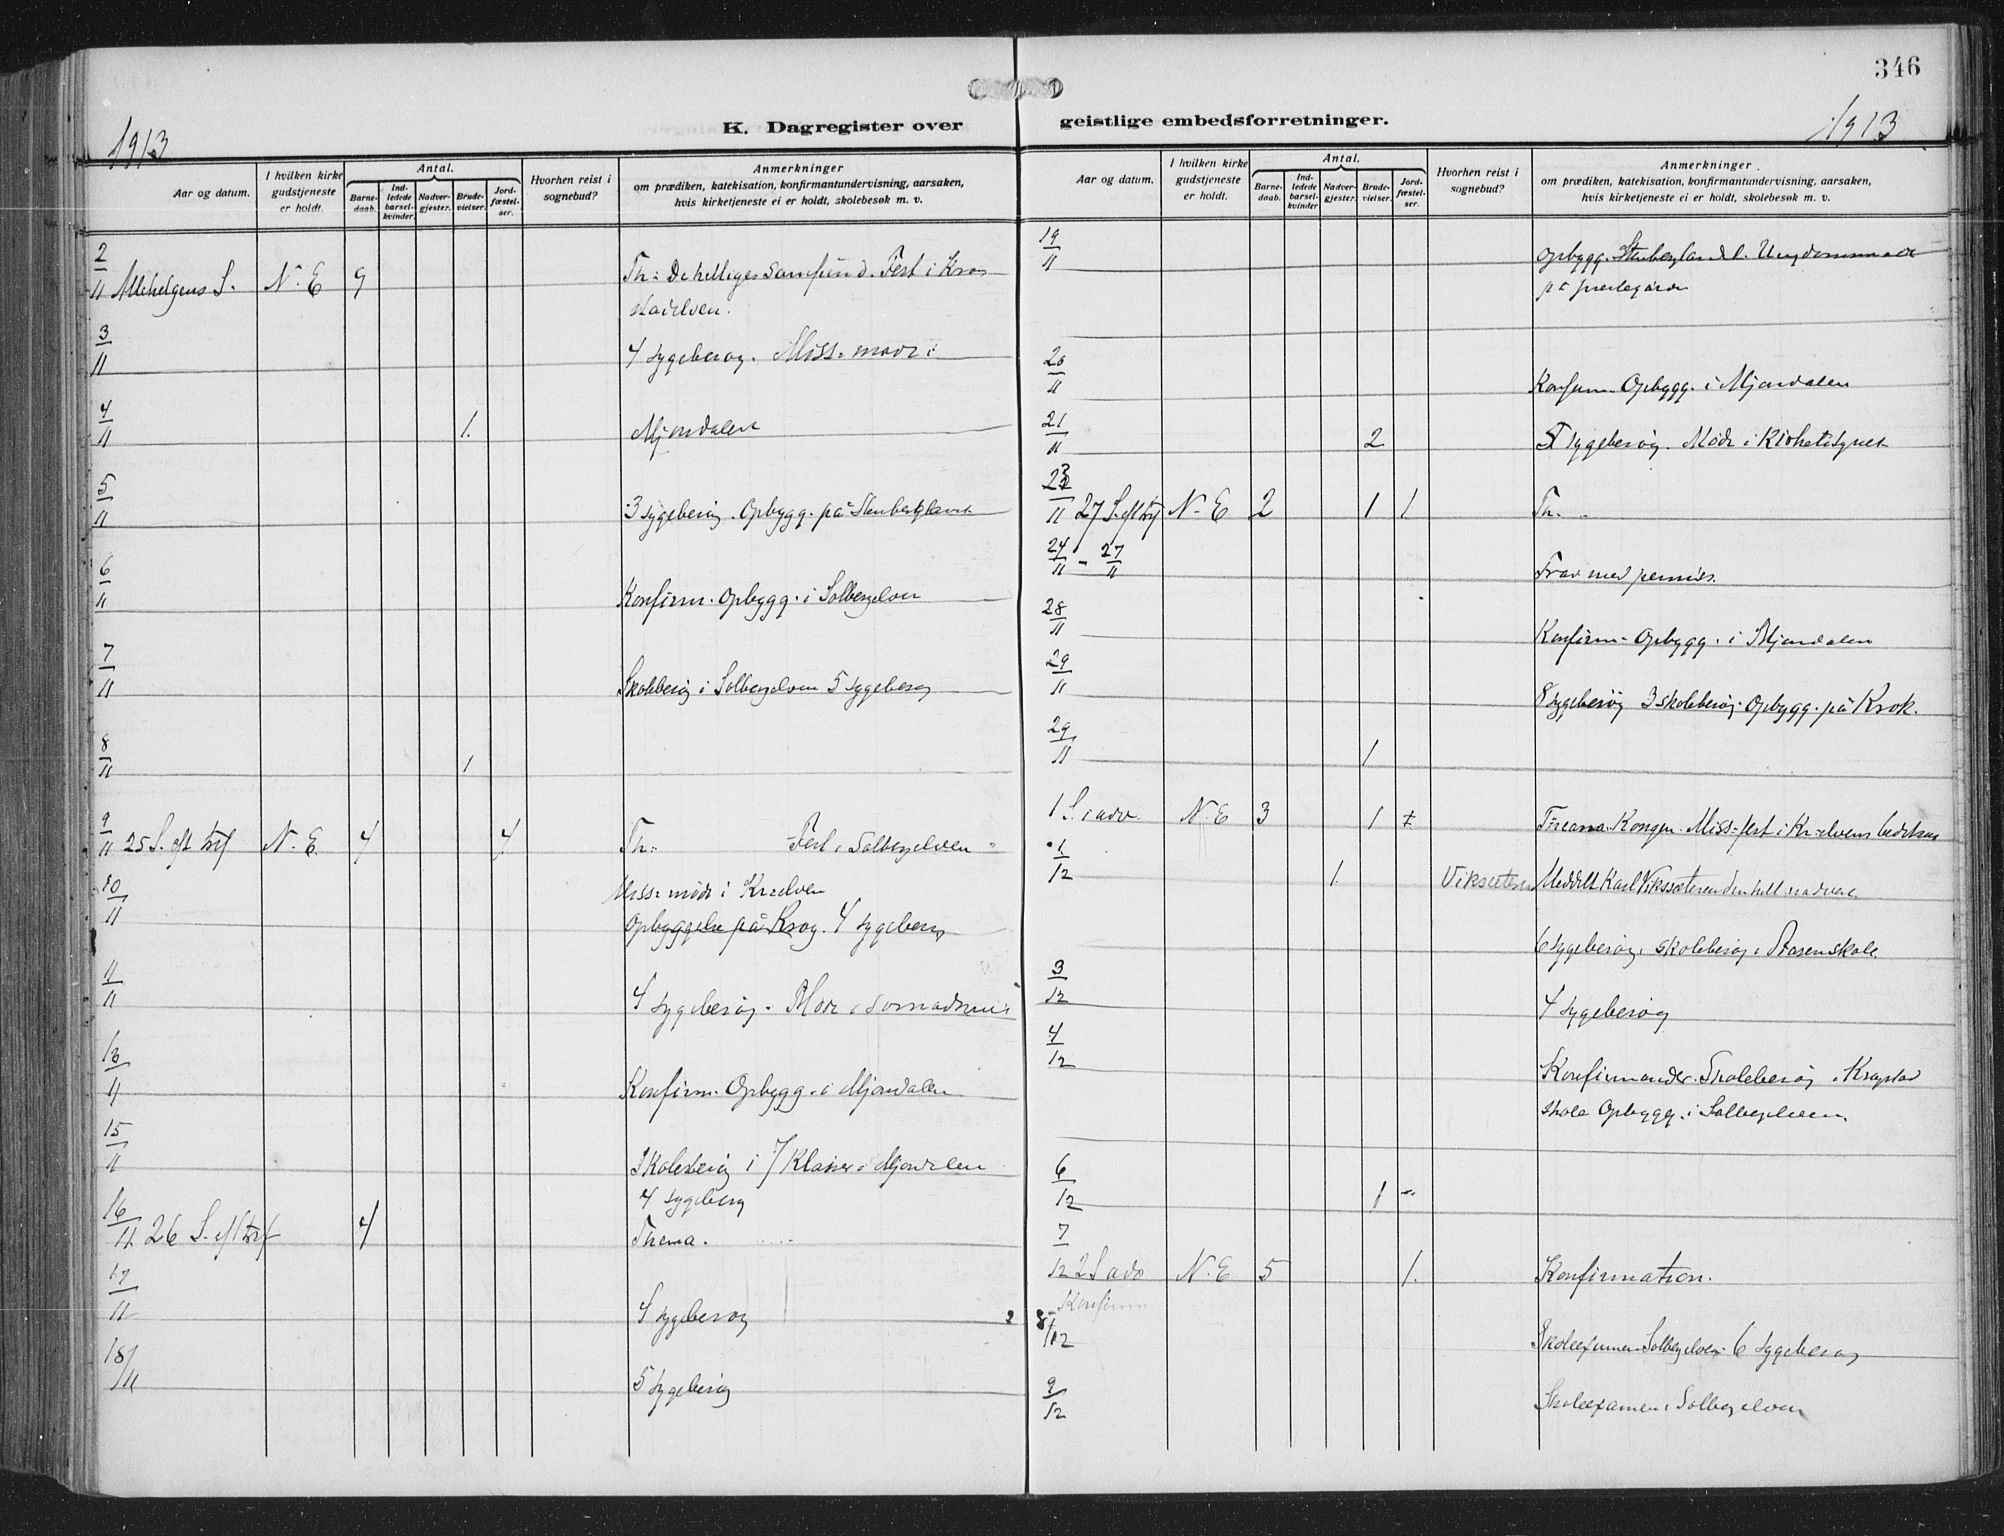 346
K. Dagregister over geistlige embedsforretninger.
1913
1913
Aar og datum.
I hvilken kirke gudstjeneste er holdt.
Antal.
Barnedaab.
Indledede barselkvinder.
Nadvergjester.
Brudevielser.
Jordfæstelser.
Hvorhen reist i sognebud?
Anmerkninger
om prædiken, katekisation, konfirmantundervisning, aarsaken,
hvis kirketjeneste ei er holdt, skolebesøk m. v.
2/11 Allehelgens S. N. E 9 Th: De helliges samfund. Fest i Krog
stadelven.
3/11 4 sygebesøg. Miss= møde i
4/11 1. Mjøndalen
5/11 3 sygebesøg. Opbygg. på Stenberglandet
6/11 Konfirm. Opbygg. i Solbergelven
7/11 Skolebesøg i Solbergelven 5 sygebesøg
8/11 1
9/11 25 S. eft tref N. E. 4 4 Th: Fest i Solbergelven
10/11 Miss= møde i Kr=elven
Opbyggelse på Krog. 4 sygebesøg
11/11 4 sygebesøg. Møde i
13/11 Konfirm. Opbygg. i Mjøndalen
15/11 Skolebesøg i 7 Klasser i Mjøndalen
4 sygebesøg
16/11 26 S. eft tref 4 Thema.
17/11 4 sygebesøg
18/11 5 sygebesøg
Aar og datum.
I hvilken kirke gudstjeneste er holdt.
Antal.
Barnedaab.
Indledede barselkvinder.
Nadvergjester.
Brudevielser.
Jordfæstelser.
Hvorhen reist i sognebud?
Anmerkninger.
om prædiken, katekisation, konfirmantundervisning, aarsaken,
hvis kirketjeneste ei er holdt, skolebesøk m. v.
19/11 Opbygg. Stenberglandet. Ungdomsmøde
på prestegården
20/11 Konfirm. Opbygg. i Mjøndalen
21/11 2 sygebesøg. Møde i
23/11 27 S. eft tref N. E 2 1 1 Th.
24/11 - 27/11 Frav. med permis.
28/11 Konfirm. Opbygg. i Mjøndalen
29/11 8 sygebesøg 3 skolebesøg. Opbygg. på Krok.
29/11 1
1 S. i adv. N. E 3 1 Kongen. Miss= fest i Kr=elvens bedehus
1/12 1. Viksæteren Meddelt Karl Viksæteren den hell. nadvere
6 sygebesøg. skolebesøg i Åsen skole.
3/12 4 sygebesøg
4/12 Konfirmander. Skolebesøg i Krogstad
skole Opbygg. i Solbergelven.
6/12 1
7/12 2 S adv N. E 5 1. Konfirmation.
Konfirm
8/12 Skoleexamen Solbergelven. 6 sygebesøg
9/12 Skoleexamen i Solbergelven